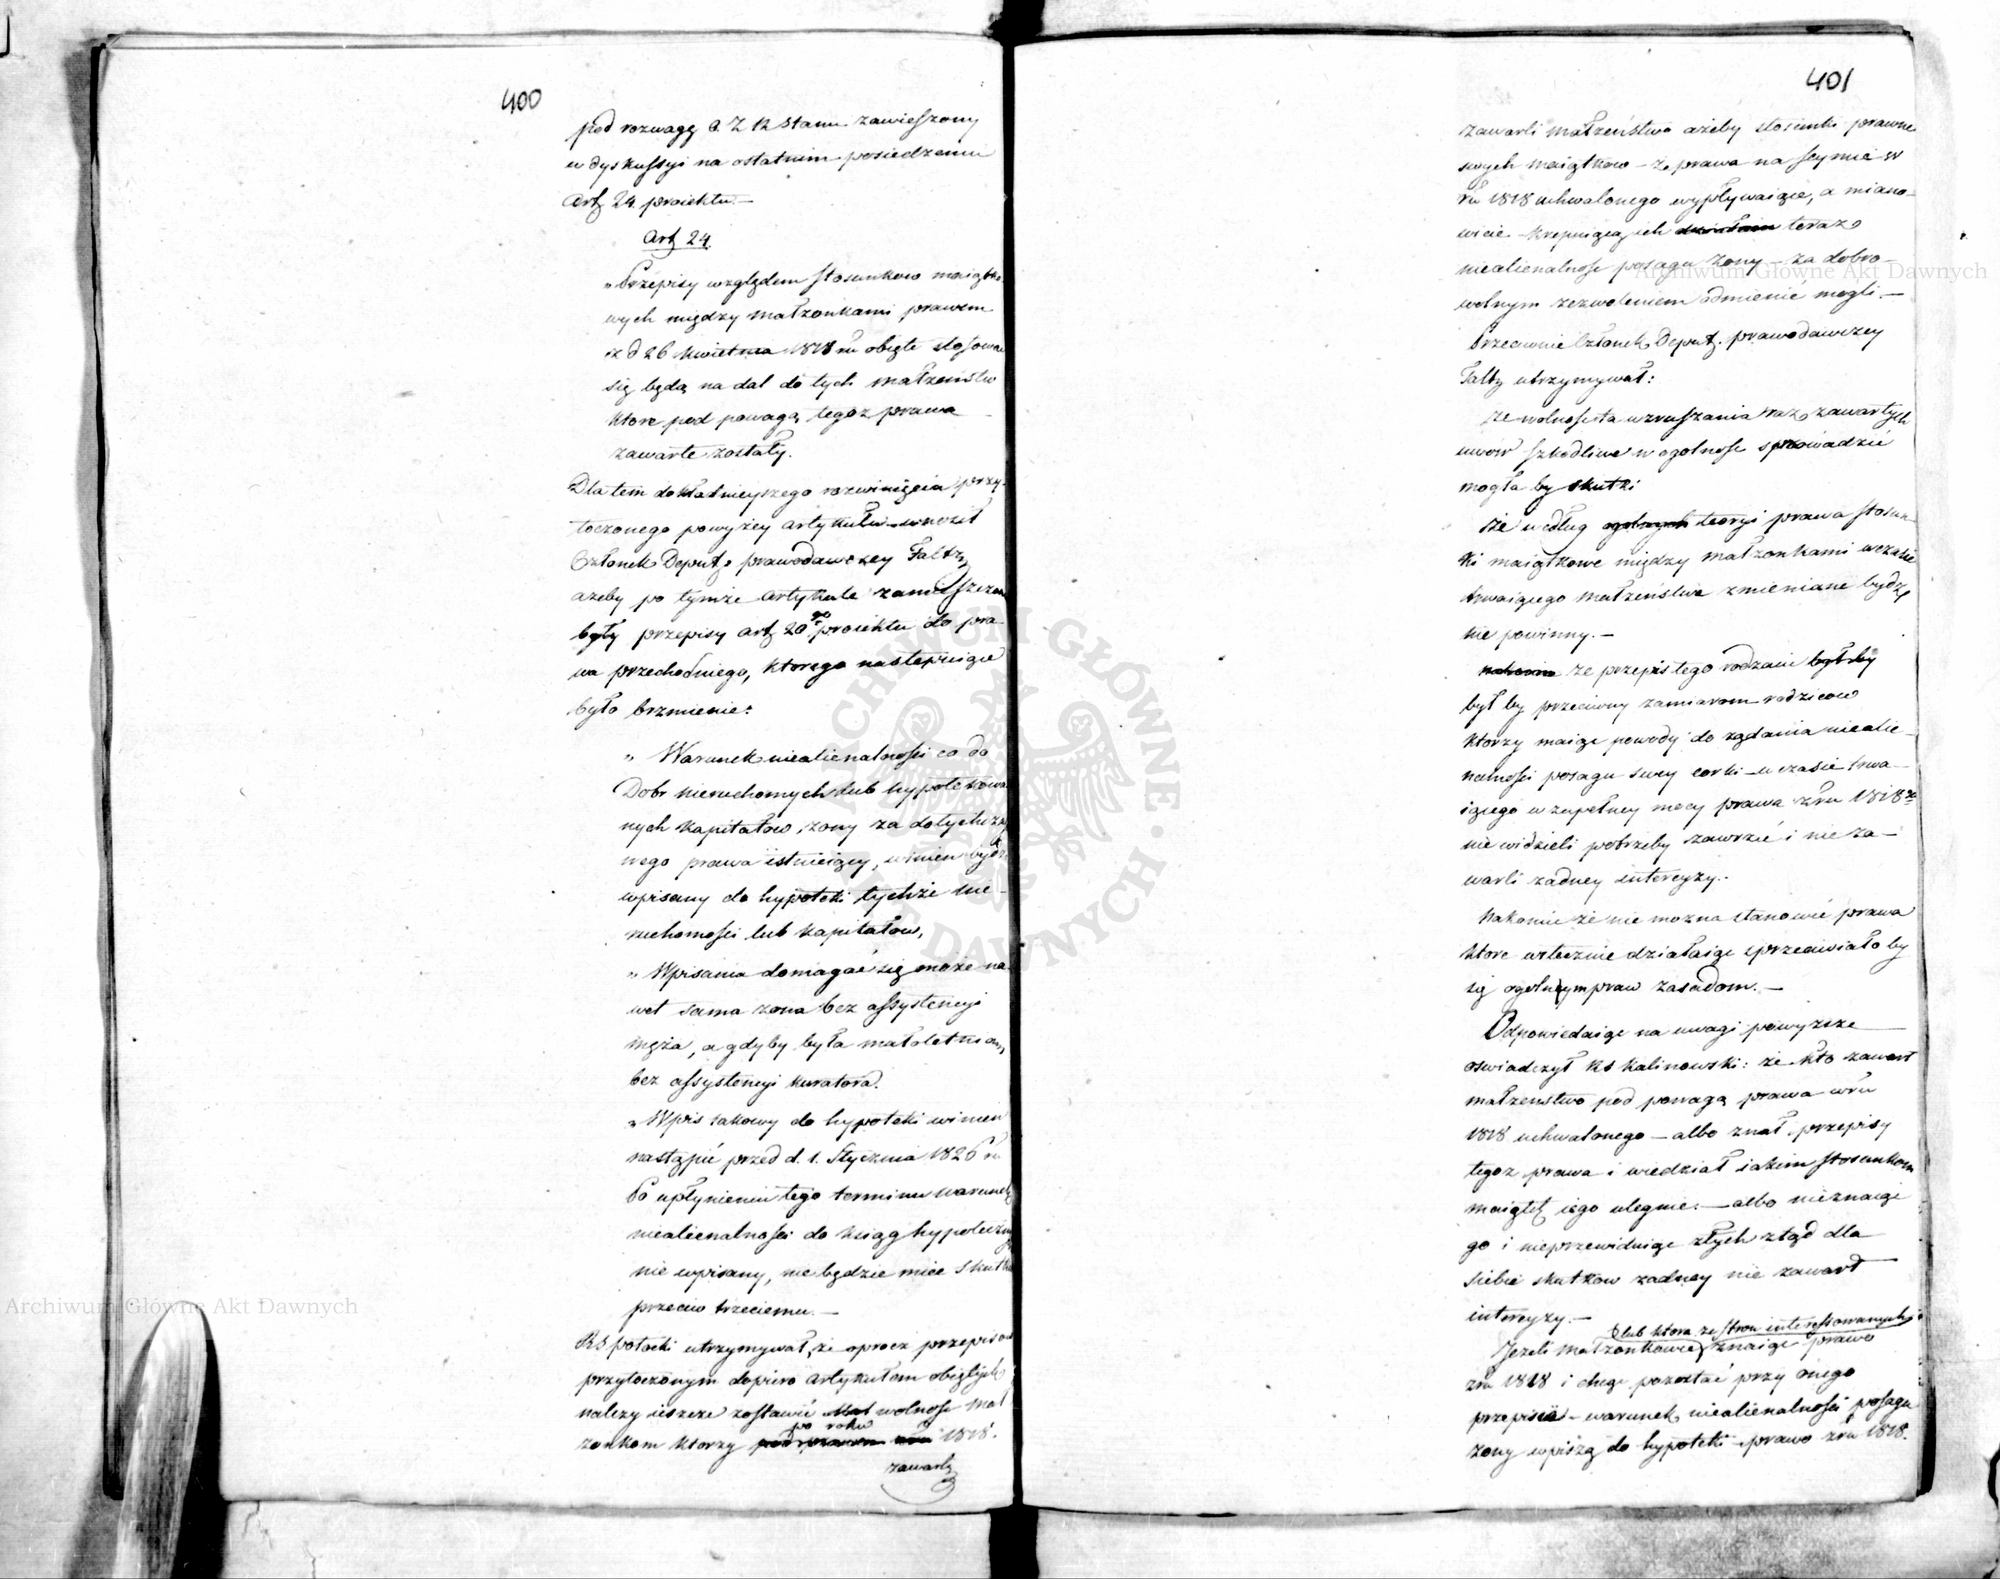 400
pod rozwagę R. Z K Stanu zawieszony
w dyskussyi na ostatnim posiedzeniu
Art. 24 proiektu.—
Art 24.
„Przepisy względem stosunkow maiątko
wych między małżonkami prawem
z d 26 kwietnia 1818 ru obięte stosowac
się będą na dal do tych małżeństw
ktore pod powagą tegoz prawa
zawarte zostały.
Dla tem dokładnieyszego rozwinięcia przy-
toczonego powyżey artykułu wnosił
Członek Deput. prawodawczey Faltz,
azeby po tymże artykule zamieszczone
były przepisy art 20go proiektu do pra-
wa przechodniego, ktorego następuiące
było brzmienie:
„Warunek niealienalności co do
Dobr nieruchomych lub hypotekowa
nych kapitałow, żony za dotychczaso
wego prawa istnieiący, winien bydź
wpisany do hypoteki tychże nie-
ruchomości lub kapitałow,
„Wpisania domagać się może na
wet sama żona bez assystencyi
męża, a gdyby była małoletnia,
bez assystencyi kuratora.
„Wpis takowy do hypoteki winien
nastąpić przed d. 1. Stycznia 1826 r.
Po upłynieniu tego terminu warunek
niealienalności do ksiąg hypoteczny
nie wpisany, nie będzie miec skutku
przeciw trzeciemu.—
RS potocki utrzymywał, że oprocz przepisow
przytoczonym dopiero artykułem obiętych
należy ieszcze zostawić wolność mał
po roku
żonkom ktorzy pod prawem 1818.
zawarli
401
zawarli małżeństwo ażeby stosunki prawne
swych maiątkow – z prawa na seymie w
ru 1818 uchwalonego wypływaiące, a miano-
wicie krępuiącą ich teraz
niealienalność posagu żony – za dobro-
wolnym zezwoleniem odmienić mogli.—
Przeciwnie Członek Deput. prawodawczey
Faltz utrzymywał:
że wolność ta wzruszania raz zawartych
umów szkodliwe w ogolnosc sprowadzić
mogła by skutki
że według ogolnych teoryi prawa stosun-
ki maiątkowe między małżonkami w czasie
trwaiącego małżeństwa zmieniane bydź
nie powinny.—
nakoniec że przepis tego rodzaiu był by
był by przeciwny zamiarom rodzicow
ktorzy maiąc powody do żądania niealie-
nalności posagu swey corki – w czasie trwa-
iącego w zupełney mocy prawa z ru 1818go
nie widzieli potrzeby zawrzeć i nie za-
warli żadney intercyzy.
Nakoniec że nie można stanowić prawa
ktore wstecznie działaiąc sprzeciwiało by
się ogolnym praw zasadom.—
Odpowiadaiąc na uwagi powyższe
oswiadczył RS Kalinowski: że kto zawarł
małżeństwo pod powagą prawa w ru
1818 uchwalonego – albo znał przepisy
tegoz prawa i wiedział iakim stosunkom
maiątek iego ulegnie. – albo nieznaiąc
go i nieprzewiduiąc złych ztąd dla
siebie skutkow żadney nie zawarł
intercyzy.—
lub ktora ze stron interessowanych
Jeżeli małżonkowie znaiąc prawo
z ru 1818 i chcąc pozostać przy onego
przepisie – warunek niealienalności posagu
żony wpiszą do hypoteki – prawo z ru 1818.
ARCHIWUM GŁÓWNE AKT DAWNYCH
Archiwum Główne Akt Dawnych
Archiwum Główne Akt Dawnych